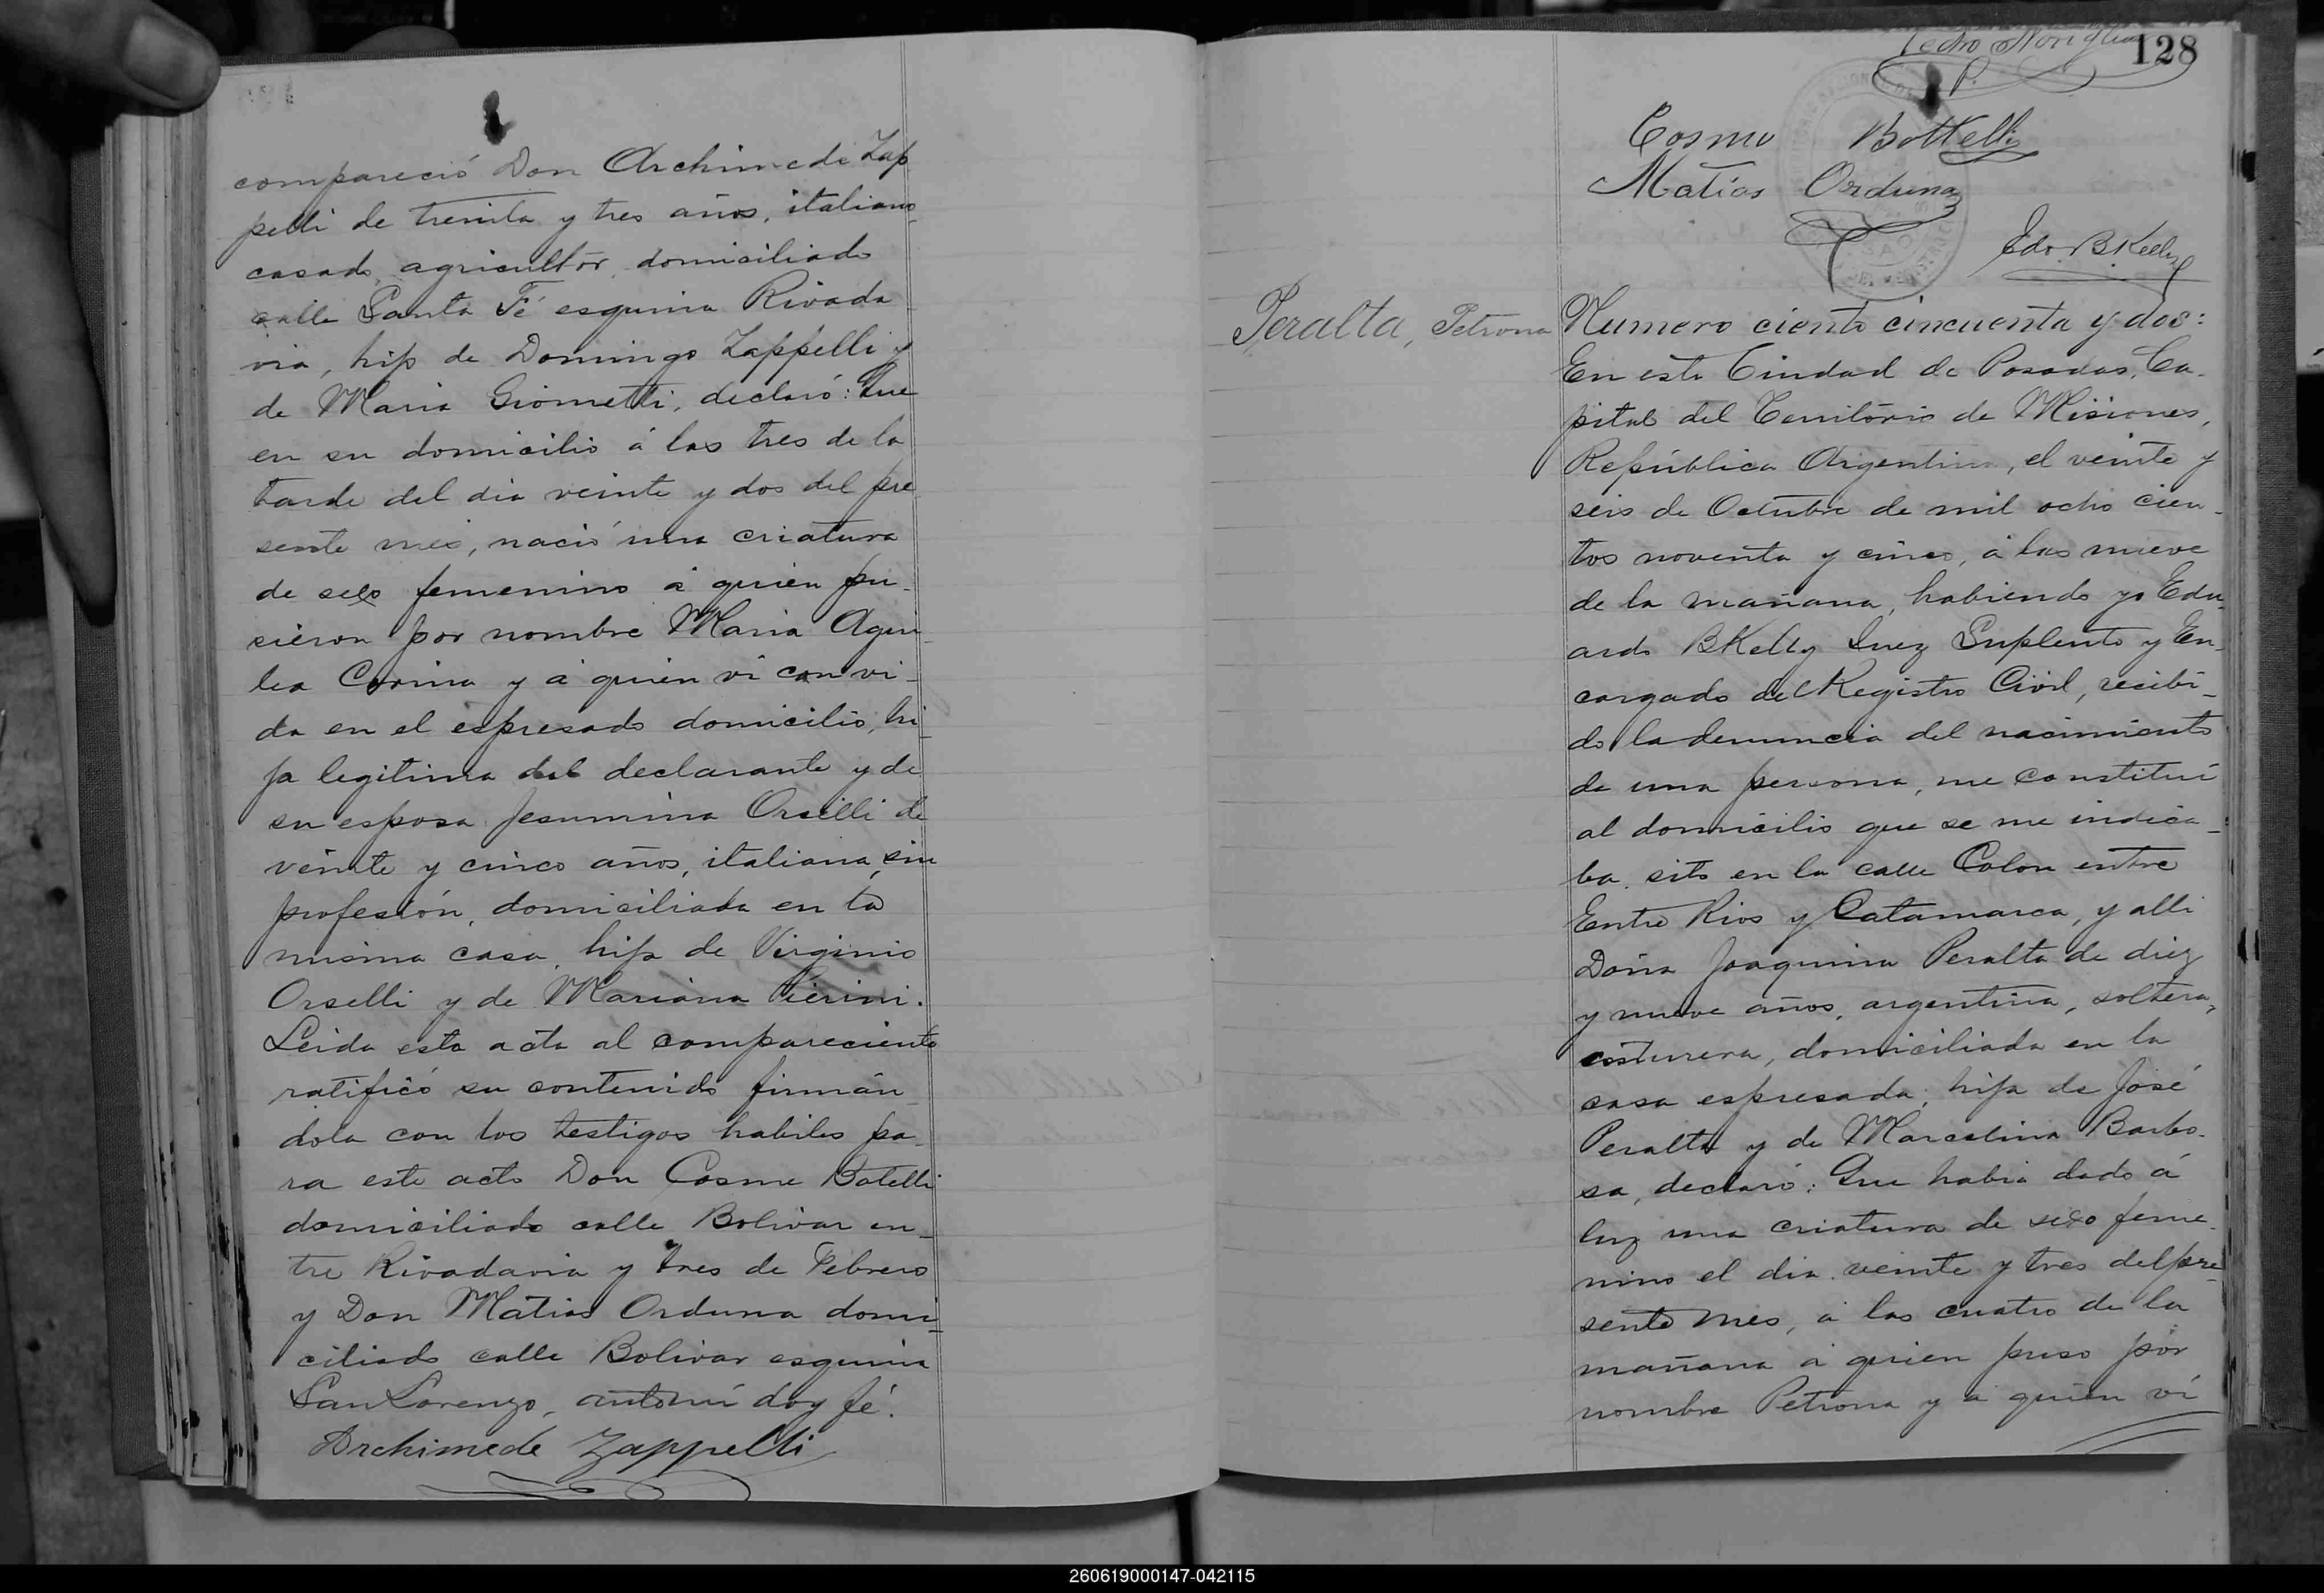 compareció Don Archimede Zap
pelli de treinta y tres años, italiano
casado, agricultor, domiciliado
calle Santa Fé esquina Rivada
via, hijo de Domingo Zappelli y
de Maria Giometti, declaró: Que
en su domicilio á las tres de la
tarde del dia veinte y dos del pre
sente mes, nació una criatura
de sexo femenino á quien pu-
sieron por nombre Maria Aqui-
lea Corina y á quien vi con vi-
da en el espresado domicilio, hi-
ja legitima del declarante y de
su esposa Jesumina Orselli de
veinte y cinco años, italiana, sin
profesión, domiciliada en la
misma casa, hija de Virginio
Orselli y de Mariana Pierini.
Leida esta acta al compareciente
ratificó su contenido firmán-
dola con los testigos habiles pa-
ra este acto Don Cosme Botelli
domiciliado calle Bolivar en-
tre Rivadavia y tres de Febrero
y Don Matias Orduna domi-
ciliado calle Bolivar esquina
San Lorenzo, antemí doy fé.
Archimede Zappelli
128
Pedro
P.
Cosmo Bottelli
Matías Orduna
Edo. B Kelly
Peralta, Petrona
Numero ciento cincuenta y dos:
En esta Ciudad de Posadas, Ca-
pital del Territorio de Misiones,
República Argentina, el veinte y
seis de Octubre de mil ocho cien-
tos noventa y cinco, á las nueve
de la mañana, habiendo yo Edu-
ardo B Kelly Juez Suplente y En-
cargado del Registro Civil, recibi-
do la denuncia del nacimiento
de una persona, me constituí
al domicilio que se me indica-
ba sito en la calle Colon entre
Entre Rios y Catamarca, y alli
Doña Joaquina Peralta de diez
y nueve años, argentina, soltera,
costurera, domiciliada en la
casa espresada, hija de José
Peralta y de Marcelina Barbo-
sa, declaró: Que habia dado á
luz una criatura de sexo feme-
nino el dia veinte y tres del pre-
sente mes, á las cuatro de la
mañana á quien puso por
nombre Petrona y á quien ví
260619000147-042115